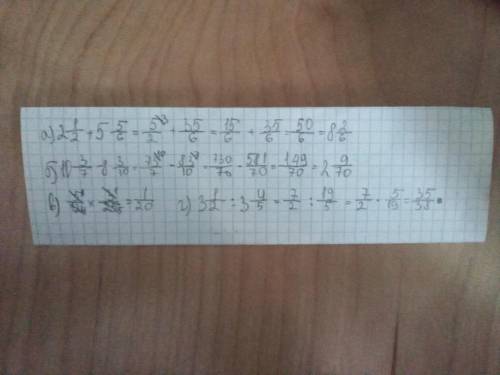 а) 2 1/2 + 5 5/6 = 5/2 + 35/6 = 15/6 + 35/6 = 50/6 = 8 2/6
б) 10 3/7 - 8 3/10 = 73/7 - 83/10 = 730/70 - 581/70 = 149/70 = 2 9/70
в) = 1/20 г) 3 1/2 : 3 4/5 = 7/2 : 19/5 = 7/2 · 5/19 = 35/38